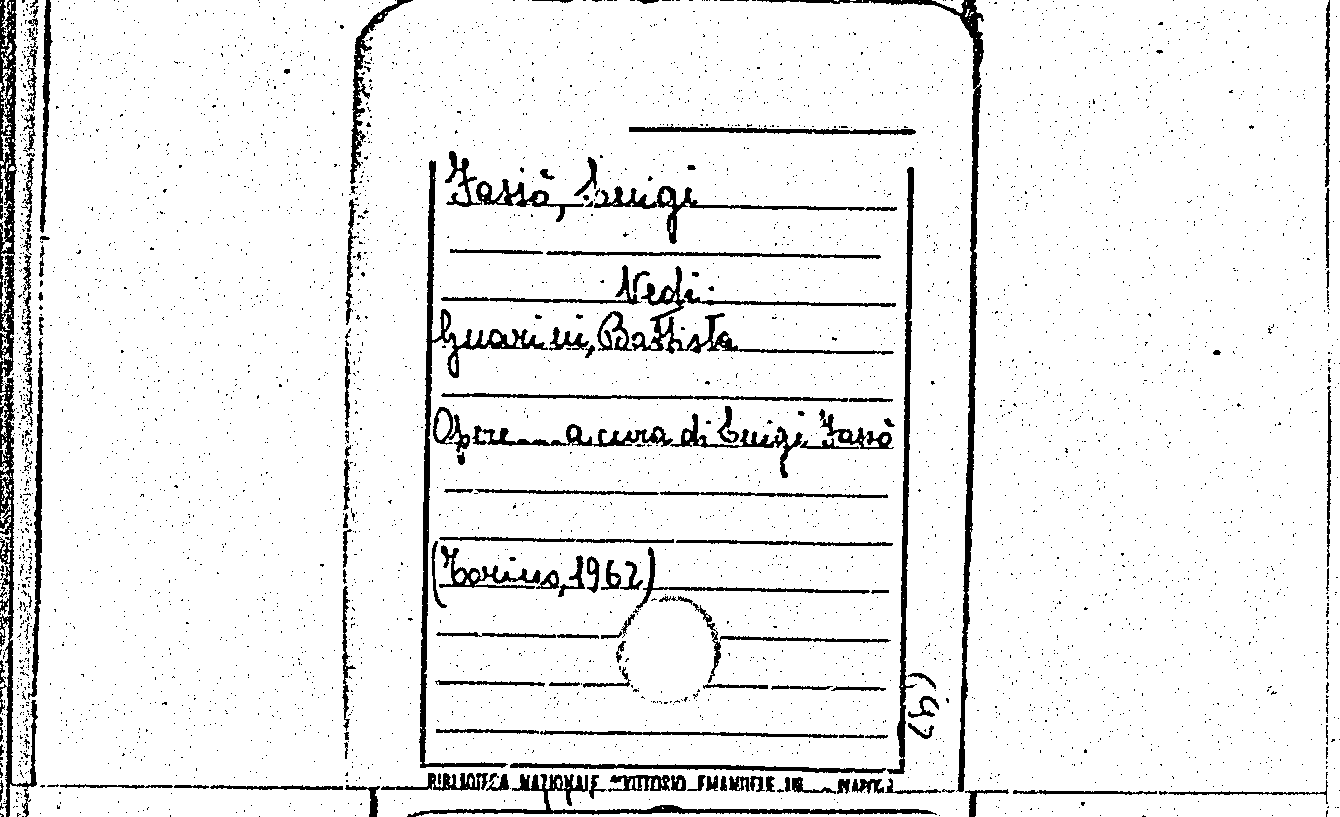 Fassò, Luigi
Vedi:
Guarini, Battista
Opere.... a cura di Luigi Fassò
(Torino, 1962)
BIBLIOTECA NAZIONALE "VITTORIO EMANUELE III" - NAPOLI